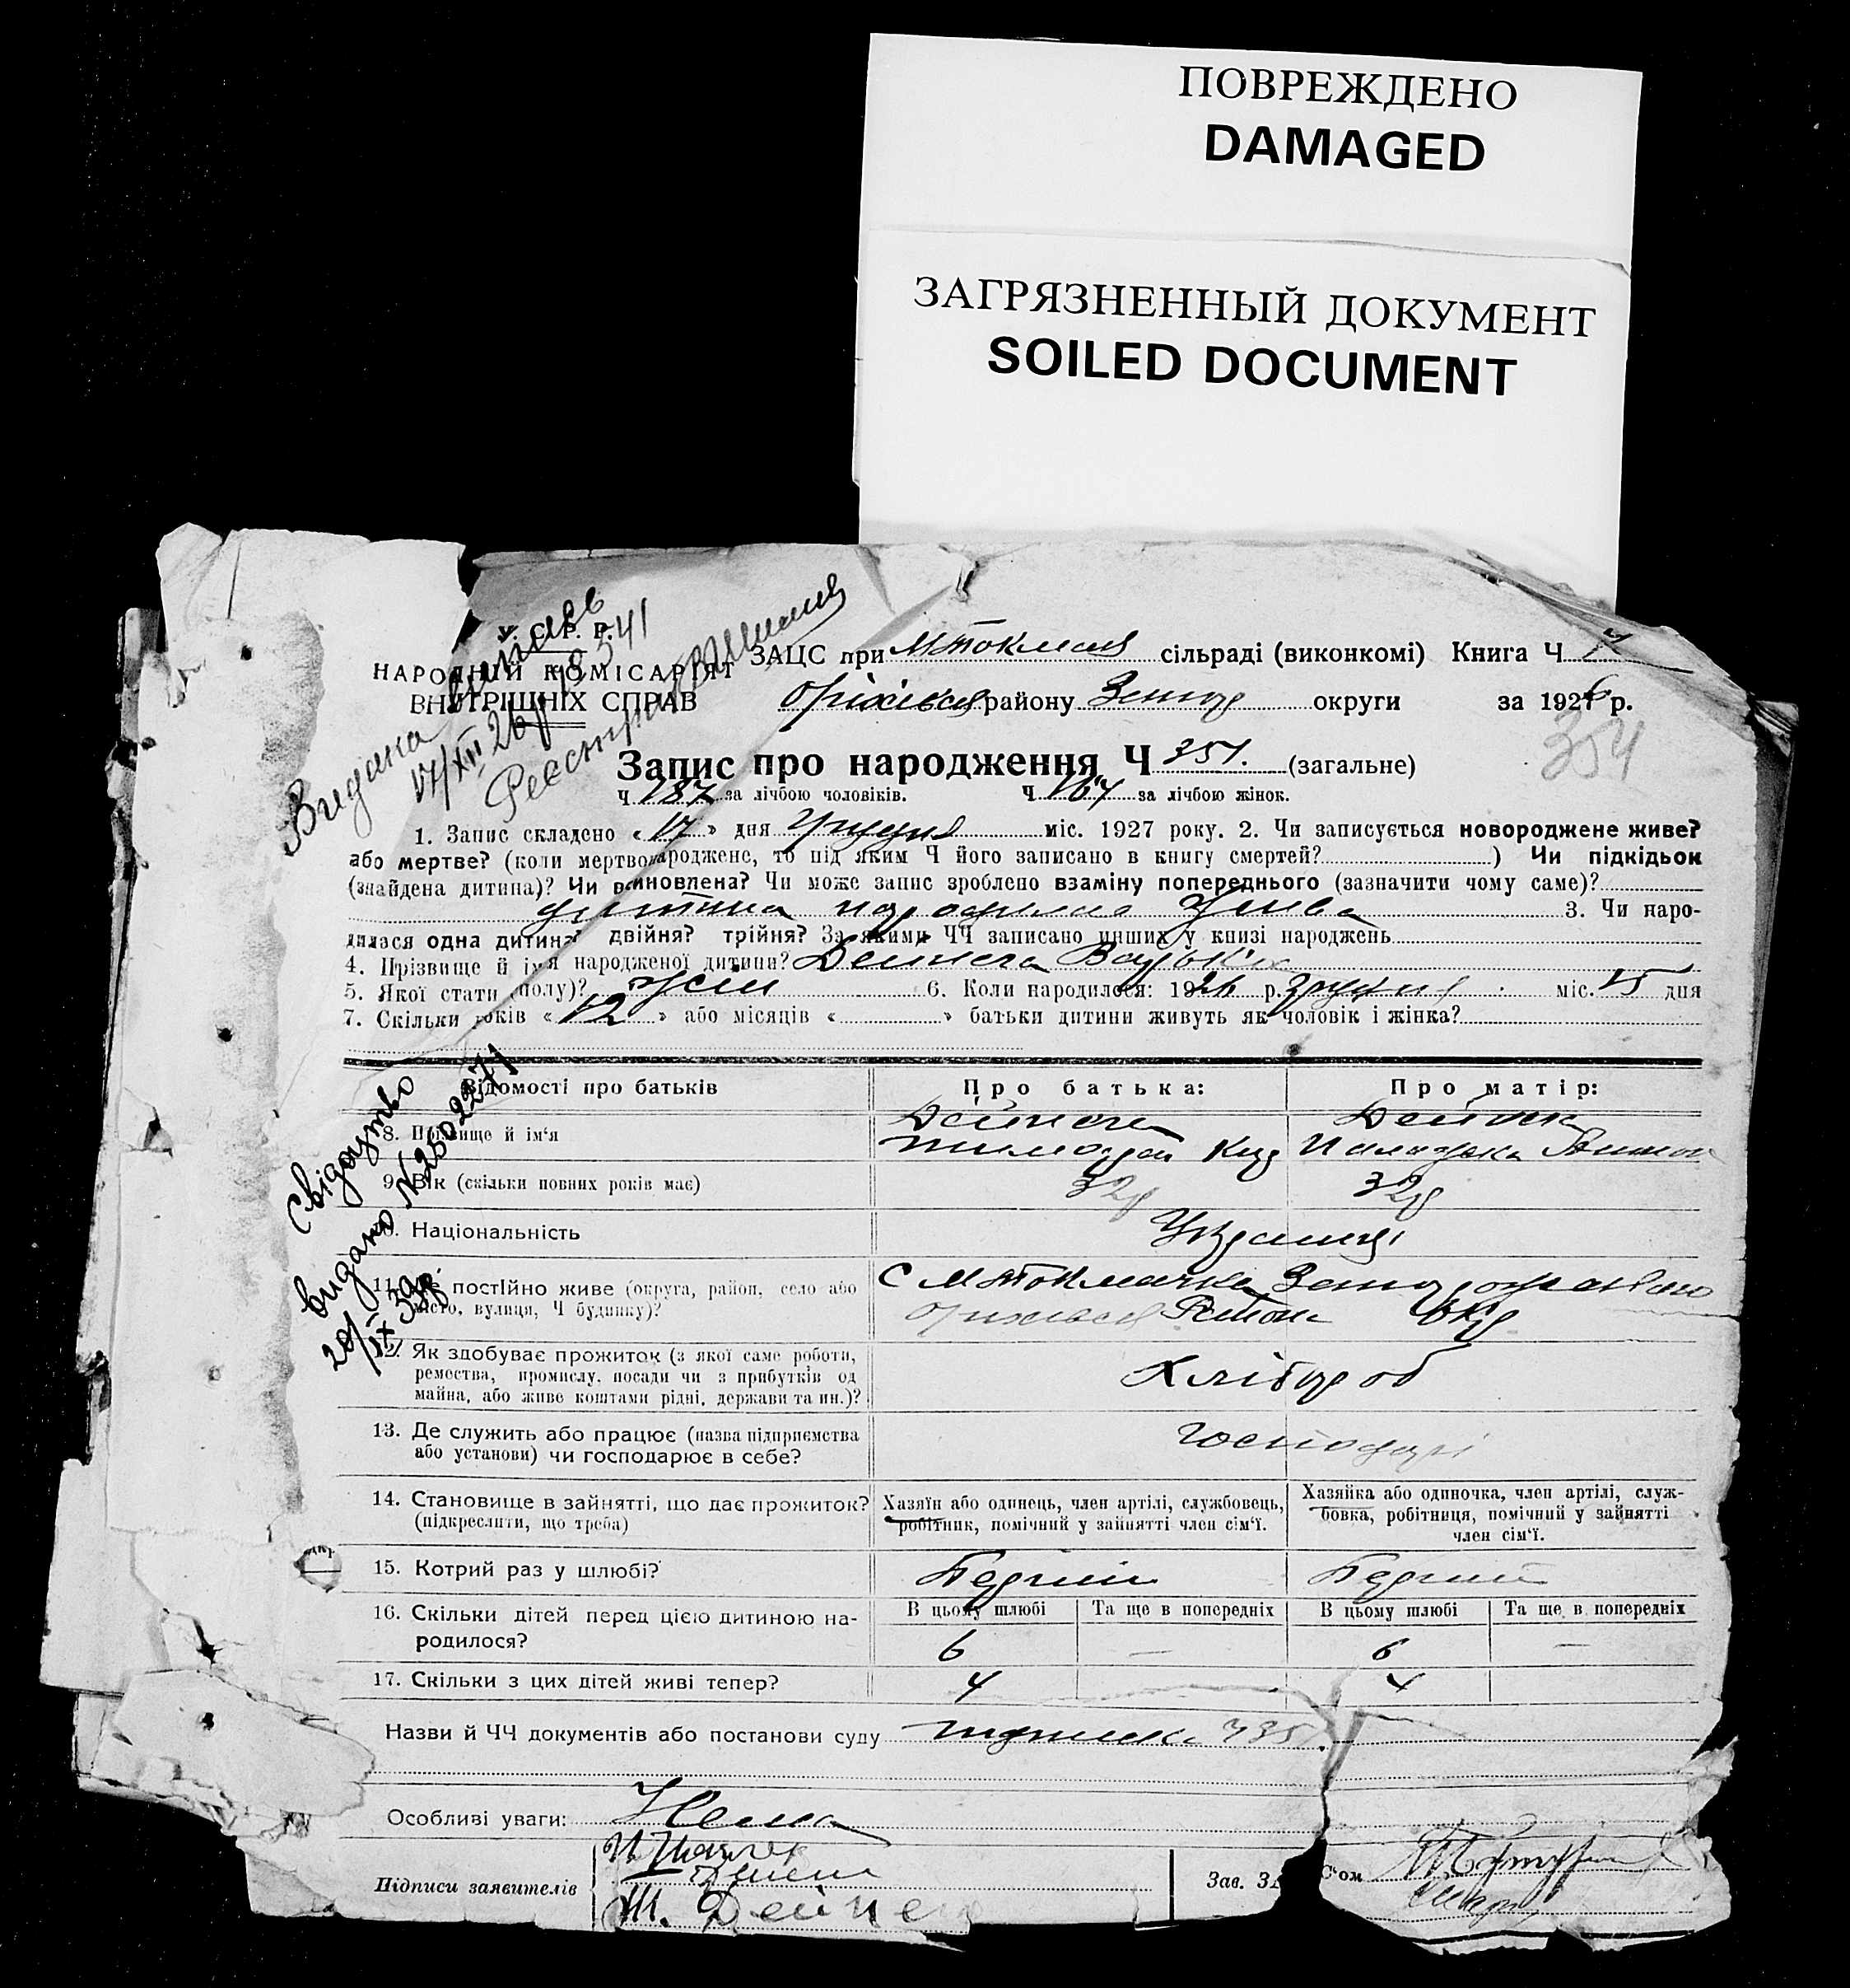 ПОВРЕЖДЕНО
DAMAGED
ЗАГРЯЗНЕННЫЙ ДОКУМЕНТ
SOILED DOCUMENT
У. С. Р. Р.
НАРОДНІЙ КОМІСАРІЯТ
ВНУТРІШНІХ СПРАВ
ЗАЦС при сільраді (виконкомі) Книга Ч
району округи за 1926 р.
Запис про народження Ч 351. (загальне)
354
Ч 187 за лічбою чоловіків. Ч 167 за лічбою жінок.
1. Запис складено «17» дня Грудня міс. 1927 року. 2. Чи записується новороджене живе?
або мертве? (коли мертвонароджене, то під яким Ч його записано в книгу смертей? ) Чи підкідьок
(знайдена дитина)? Чи вмновлена? Чи може запис зроблено взаміну попереднього (зазначити чому саме)?
дитина 3. Чи наро-
дилася одна дитина? двійня? трійня? За якими ЧЧ записано инших у книзі народжень
4. Прізвище й ім'я народженої дитини? Дейнега
5. Якої стати (полу)? 6. Коли народилося: 1926 р. грудня міс. 15 дня
7. Скільки років «12» або місяців « » батьки дитини живуть як чоловік і жінка?
Відомості про батьків Про батька: Про матір:
8. Прізвище й ім'я Дейнега Дейнега
9. Вік (скільки повних років має) 32р 32р
10. Національність Українці
11. Де постійно живе (округа, район, село або
місто, вулиця, Ч будинку)?
С М Токмачка
Района
12. Як здобуває прожиток (з якої саме роботи,
ремества, промислу, посади чи з прибутків од
майна, або живе коштами рідні, держави та ин.)?
Хлібороб
13. Де служить або працює (назва підприємства
або установи) чи господарює в себе?
господарі
14. Становище в зайнятті, що дає прожиток?
(підкреслити, що треба)
Хазяїн або одинець, член артілі, службовець,
робітник, помічний у зайнятті член сім'ї.
Хазяйка або одиночка, член артілі, служ-
бовка, робітниця, помічний у зайнятті
член сім'ї.
15. Котрий раз у шлюбі? Перший Перший
16. Скільки дітей перед цією дитиною на-
родилося?
В цьому шлюбі Та ще в попередніх В цьому шлюбі Та ще в попередніх
6 — 6 —
17. Скільки з цих дітей живі тепер? 4 4
Назви й ЧЧ документів або постанови суду
Особливі уваги: Нема
Підписи заявителів
Зав. ЗАЦС'ом
Видана
17/XII 26р
Свідоцтво
видано № 2502271
20/IX 39р